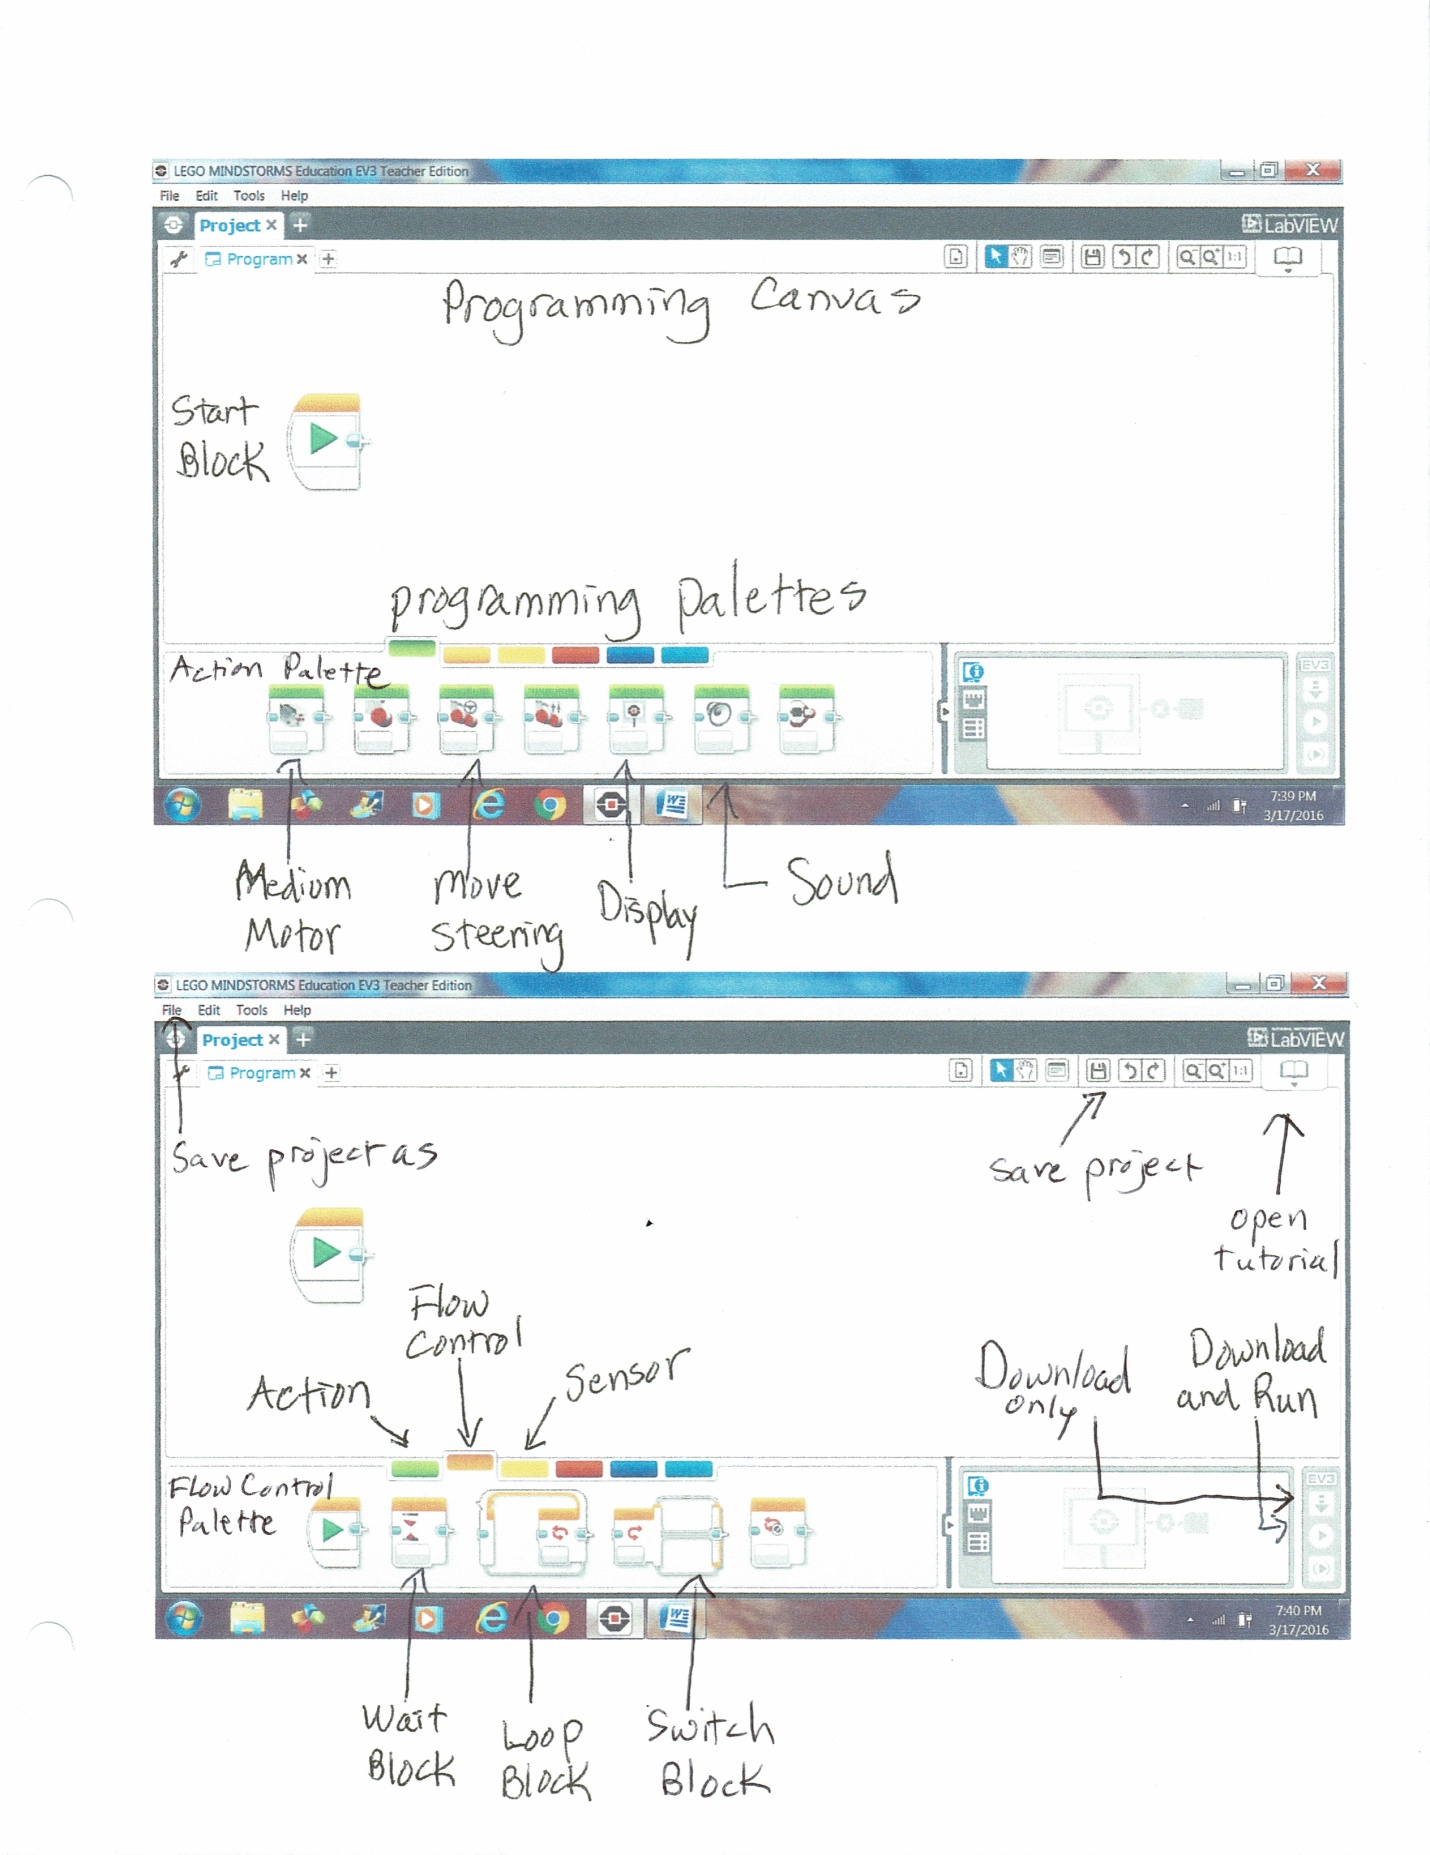 LEGO MINDSTORMS Education EV3 Teacher Edition
File Edit Tools Help
Project × +
LabVIEW
Program × +
1:1
Programming Canvas
Start
Block
programming palettes
Action Palette
EV3
7:39 PM
3/17/2016
Medium
Motor
Move
Steering
Display
Sound
LEGO MINDSTORMS Education EV3 Teacher Edition
File Edit Tools Help
Project × +
LabVIEW
Program × +
1:1
Save project as
save project
open
tutorial
Flow
Control
Action
Sensor
Download
only
Download
and Run
Flow Control
Palette
EV3
7:40 PM
3/17/2016
Wait
Block
Loop
Block
Switch
Block